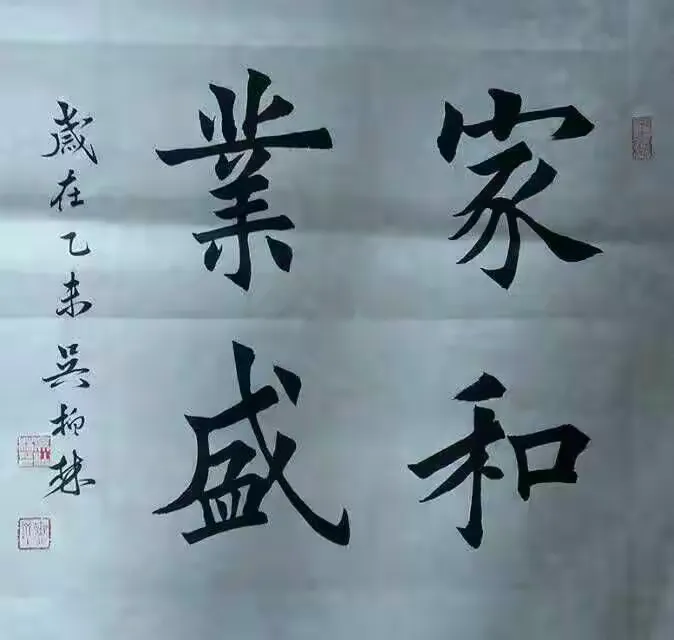 家和
業盛
歲在乙未吳柳林